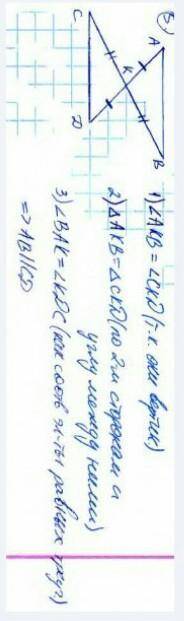 В)
A
B
C
D
K
1) ∠AKB = ∠CKD (т.к. они вертик)
2) ΔAKB = ΔCKD (по 2м сторонам и
углу между ними)
3) ∠BAK = ∠KDC (как соотв эл-ты равных треуг)
=> AB||CD